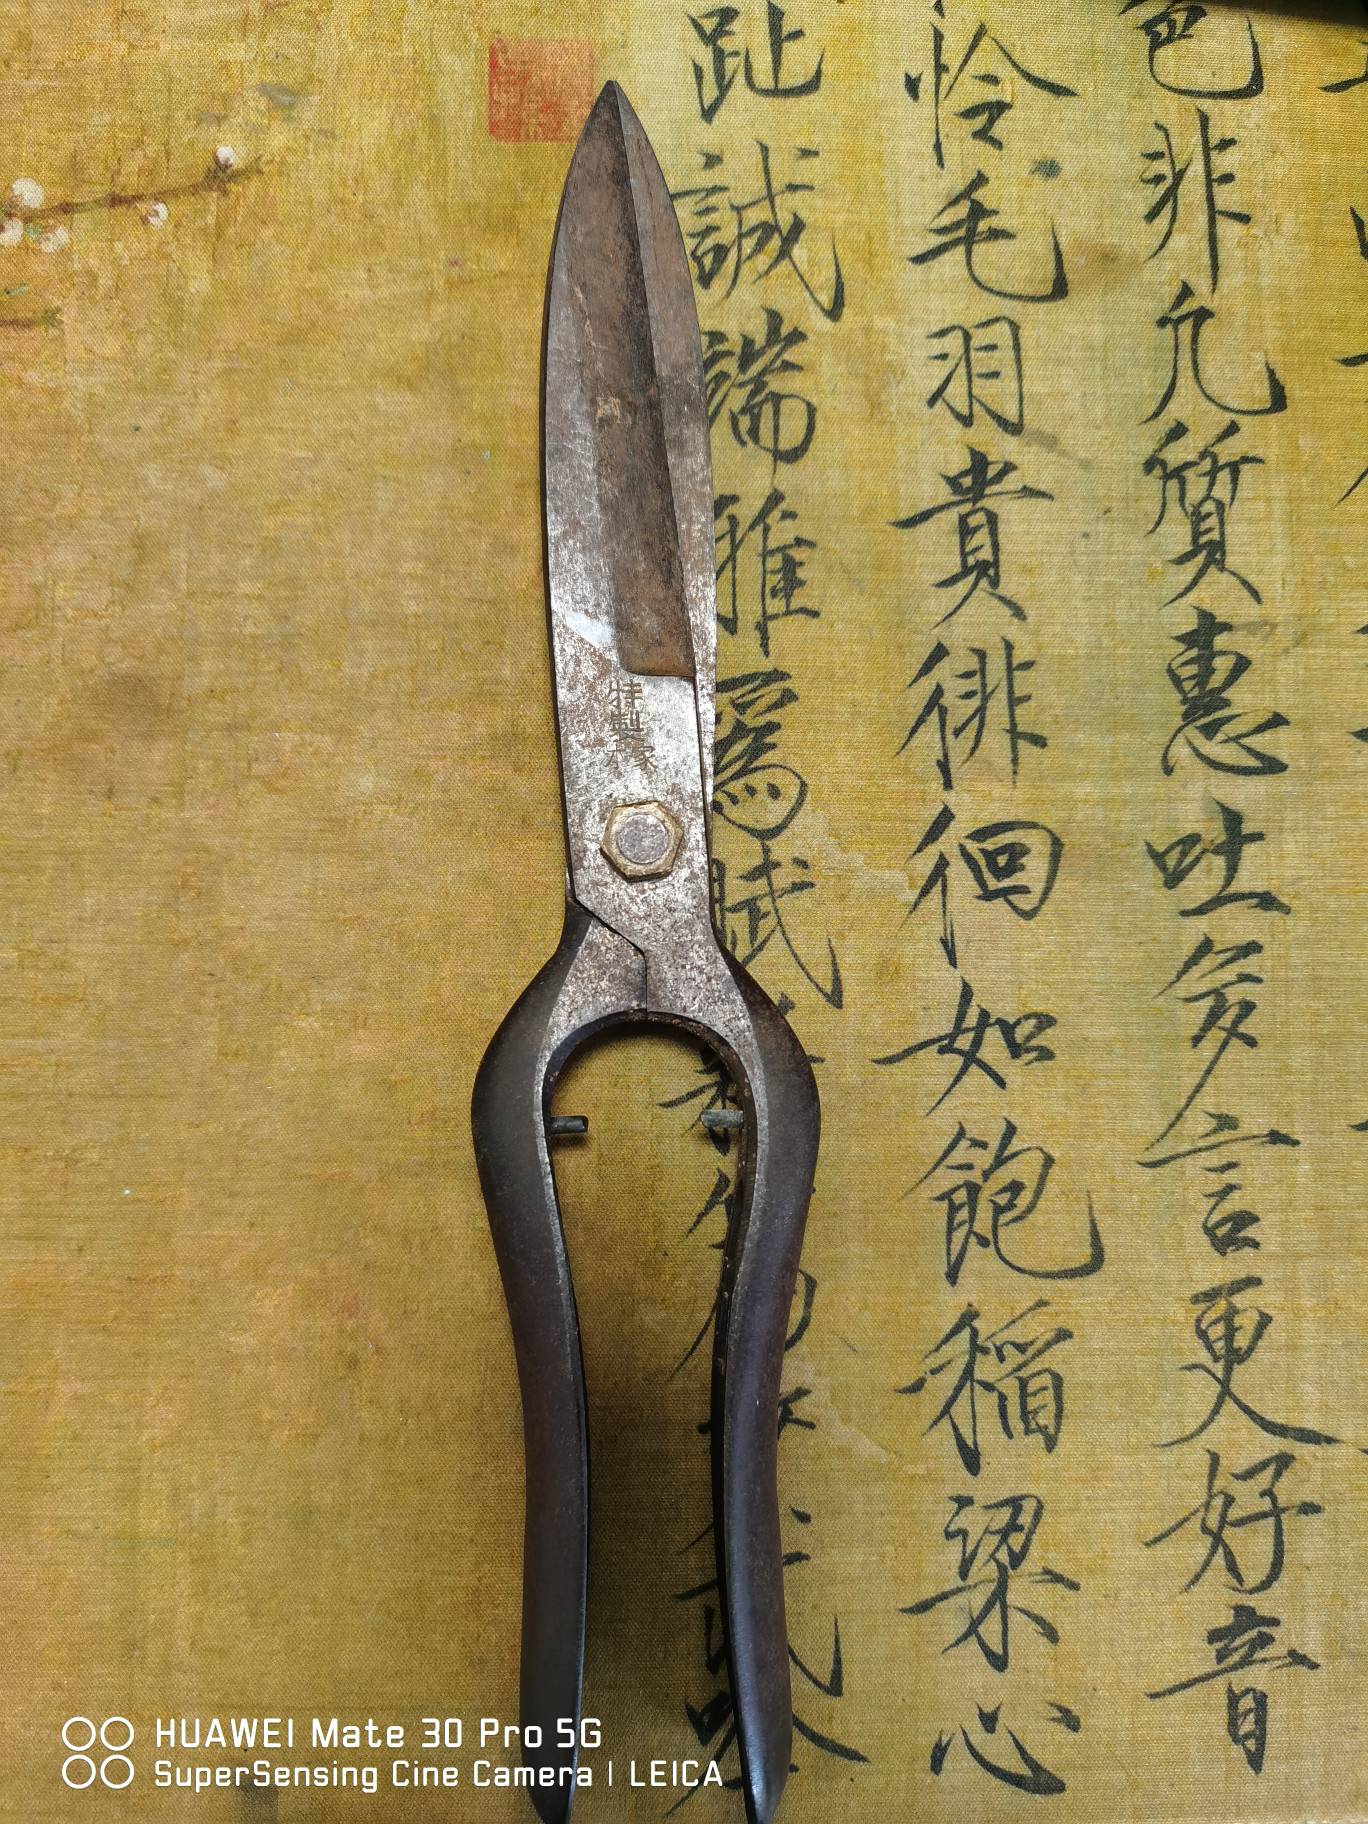 色非凡質惠吐多言更好音
怜毛羽貴徘徊如飽稻粱心
趾誠端雅爲賦
特
製
本家
HUAWEI Mate 30 Pro 5G
SuperSensing Cine Camera | LEICA